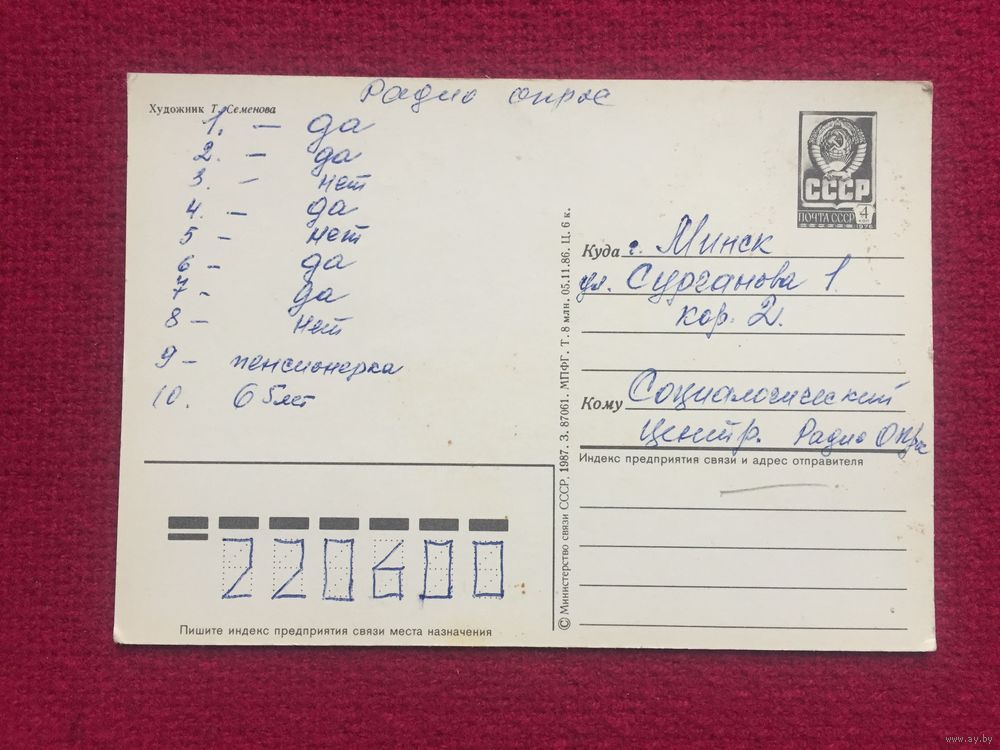 Радио опрос
Художник Т. Семенова
1. – да
2. – да
3. – нет
4. – да
5 – нет
6 – да
7 – да
8 – нет
9 – пенсионерка
10. 65 лет
СССР
ПОЧТА СССР
4
КОП
1976
Куда г. Минск
ул. Сурганова 1
кор. 2.
Кому Социалогический
Центр. Радио Опрос
Индекс предприятия связи и адрес отправителя
© Министерство связи СССР, 1987. З. 87061. МПФГ. Т. 8 млн. 05.11.86. Ц. 6 к.
220600
Пишите индекс предприятия связи места назначения
www.ay.by